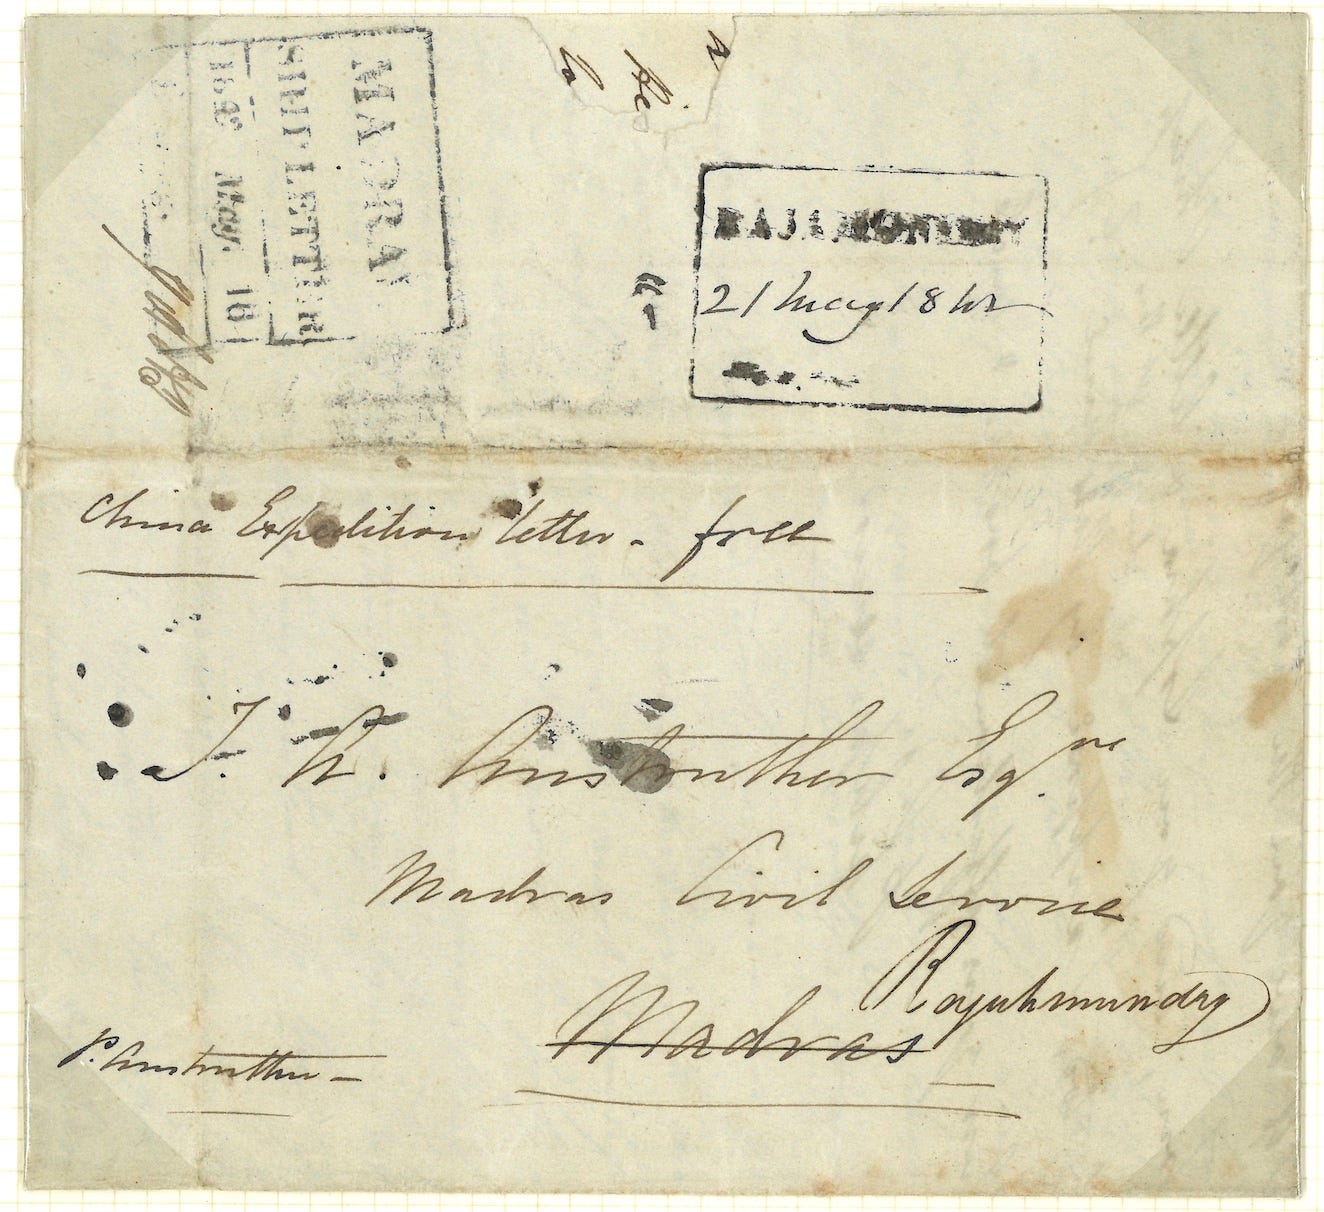 MADRAS
SHIP LETTER
May. 16
RAJAHMUNDRY
21 May 18
China Expedition letter - free
J. A. Anstruther Esqre
Madras Civil Service
Madras
Rajahmundry
P. Anstruther -